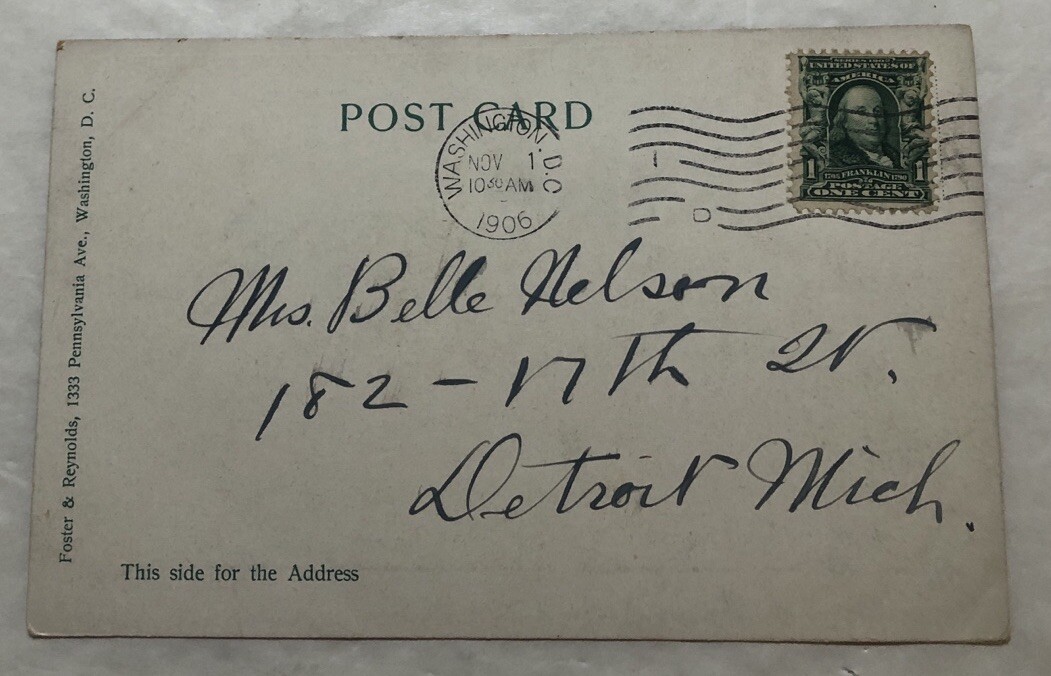 POST CARD
WASHINGTON. D.C
NOV 1
10 30 AM
1906
1
D
SERIES 1902
UNITED STATES OF
AMERICA
1 1706 FRANKLIN 1790 1
POSTAGE
ONE CENT
Mrs. Belle Nelson
182 - 17th St.
Detroit Mich.
This side for the Address
Foster & Reynolds, 1333 Pennsylvania Ave., Washington, D. C.